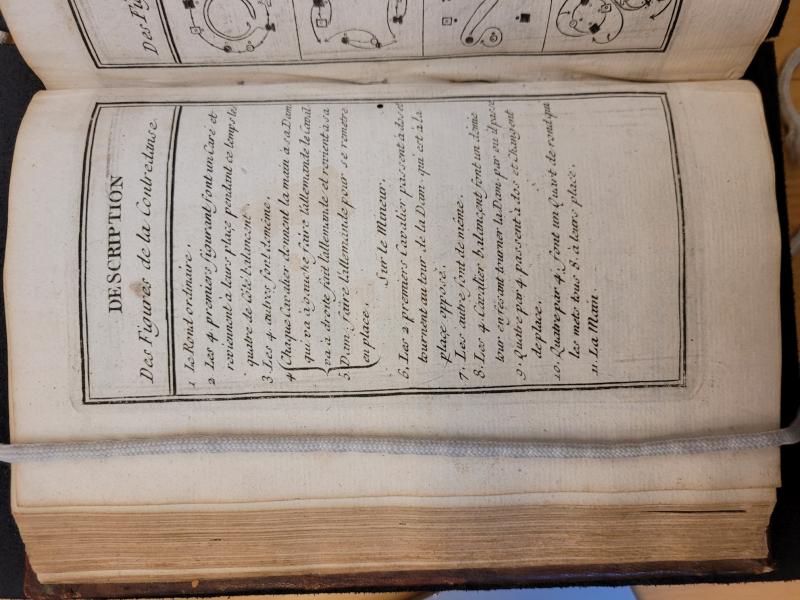 DESCRIPTION
Des Figures de la Contredanse.
1 Le Rond ordinaire.
2 Les 4 premiers figurant font un Caré et
reviennent à leurs place pendant ce temps les
quatre de côté balancent.
3. Les 4. autres font demême.
4 Chaque Cavalier donnent la main à sa Dam
qui va à gauche faire l'allemande le Caval.
va à droite fait l'allemande et revient à sa
5. Dam: faire l'allemande pour se remetre
en place.
Sur le Mineur.
6. Les 2 premiers Cavalier passent à dos et
tournent au tour de la Dam. qui est à la
place opposé.
7. Les autre font de même.
8. Les 4. Cavalier balançent font un demie
tour en fesant tourner la Dam. par ou il passe
9. Quatre par 4 passent à dos et changent
de place.
10. Quatre par 4. font un Quart de rond qui
les mets tous 8. à leurs place.
11. La Main.
Des Fig